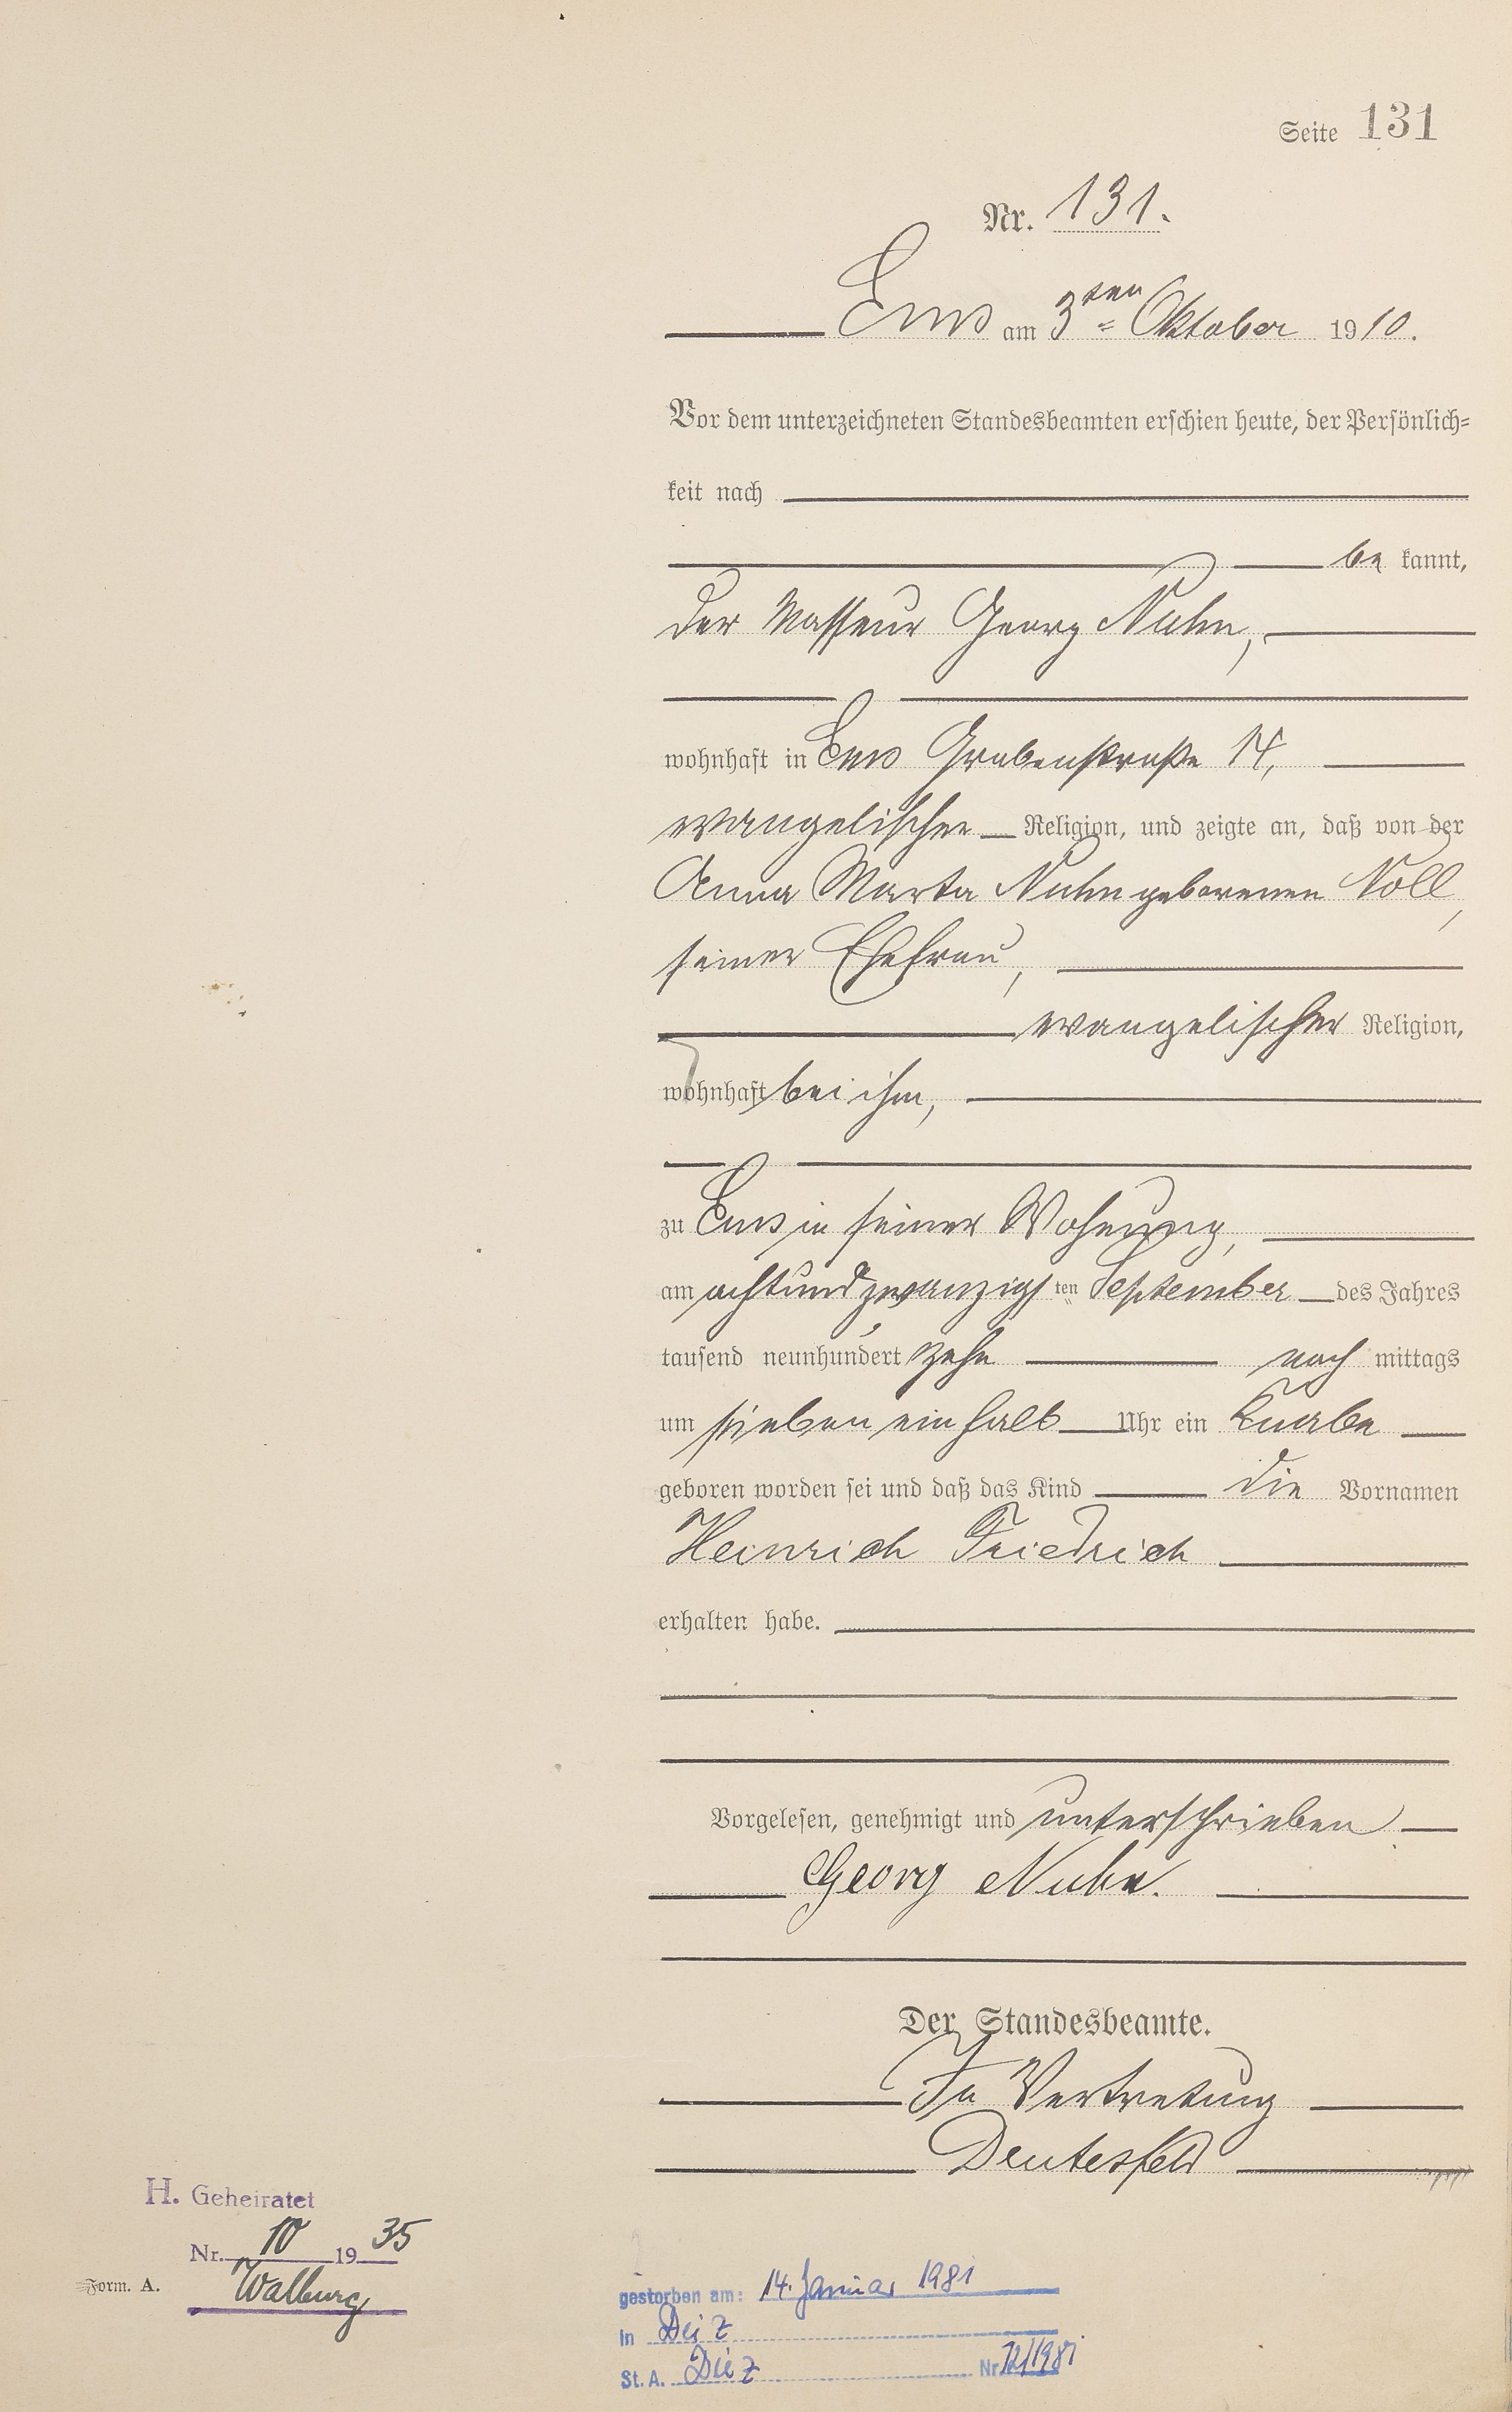 Seite 131
Nr. 131.
Ems am 3ten Oktober 1910.
Vor dem unterzeichneten Standesbeamten erschien heute, der Persönlich-
keit nach
be kannt,
der Masseur Georg Nuhn,
wohnhaft in Ems Grabenstraße 14,
evangelischer Religion, und zeigte an, daß von der
Anna Marta Nuhn geborenen Noll,
seiner Ehefrau,
evangelischer Religion,
wohnhaft bei ihm,
zu Ems in seiner Wohnung,
am achtundzwanzigsten September des Jahres
tausend neunhundert zehn nach mittags
um sieben einhalb Uhr ein Knabe
geboren worden sei und daß das Kind die Vornamen
Heinrich Friedrich
erhalten habe.
Vorgelesen, genehmigt und unterschrieben
Georg Nuhn.
Der Standesbeamte.
In Vertretung
Deutesfeld
H. Geheiratet
Nr. 10 1935
Walburg
Form. A.
gestorben am: 14. Januar 1981
in Diez
St. A. Diez Nr. 12/1981